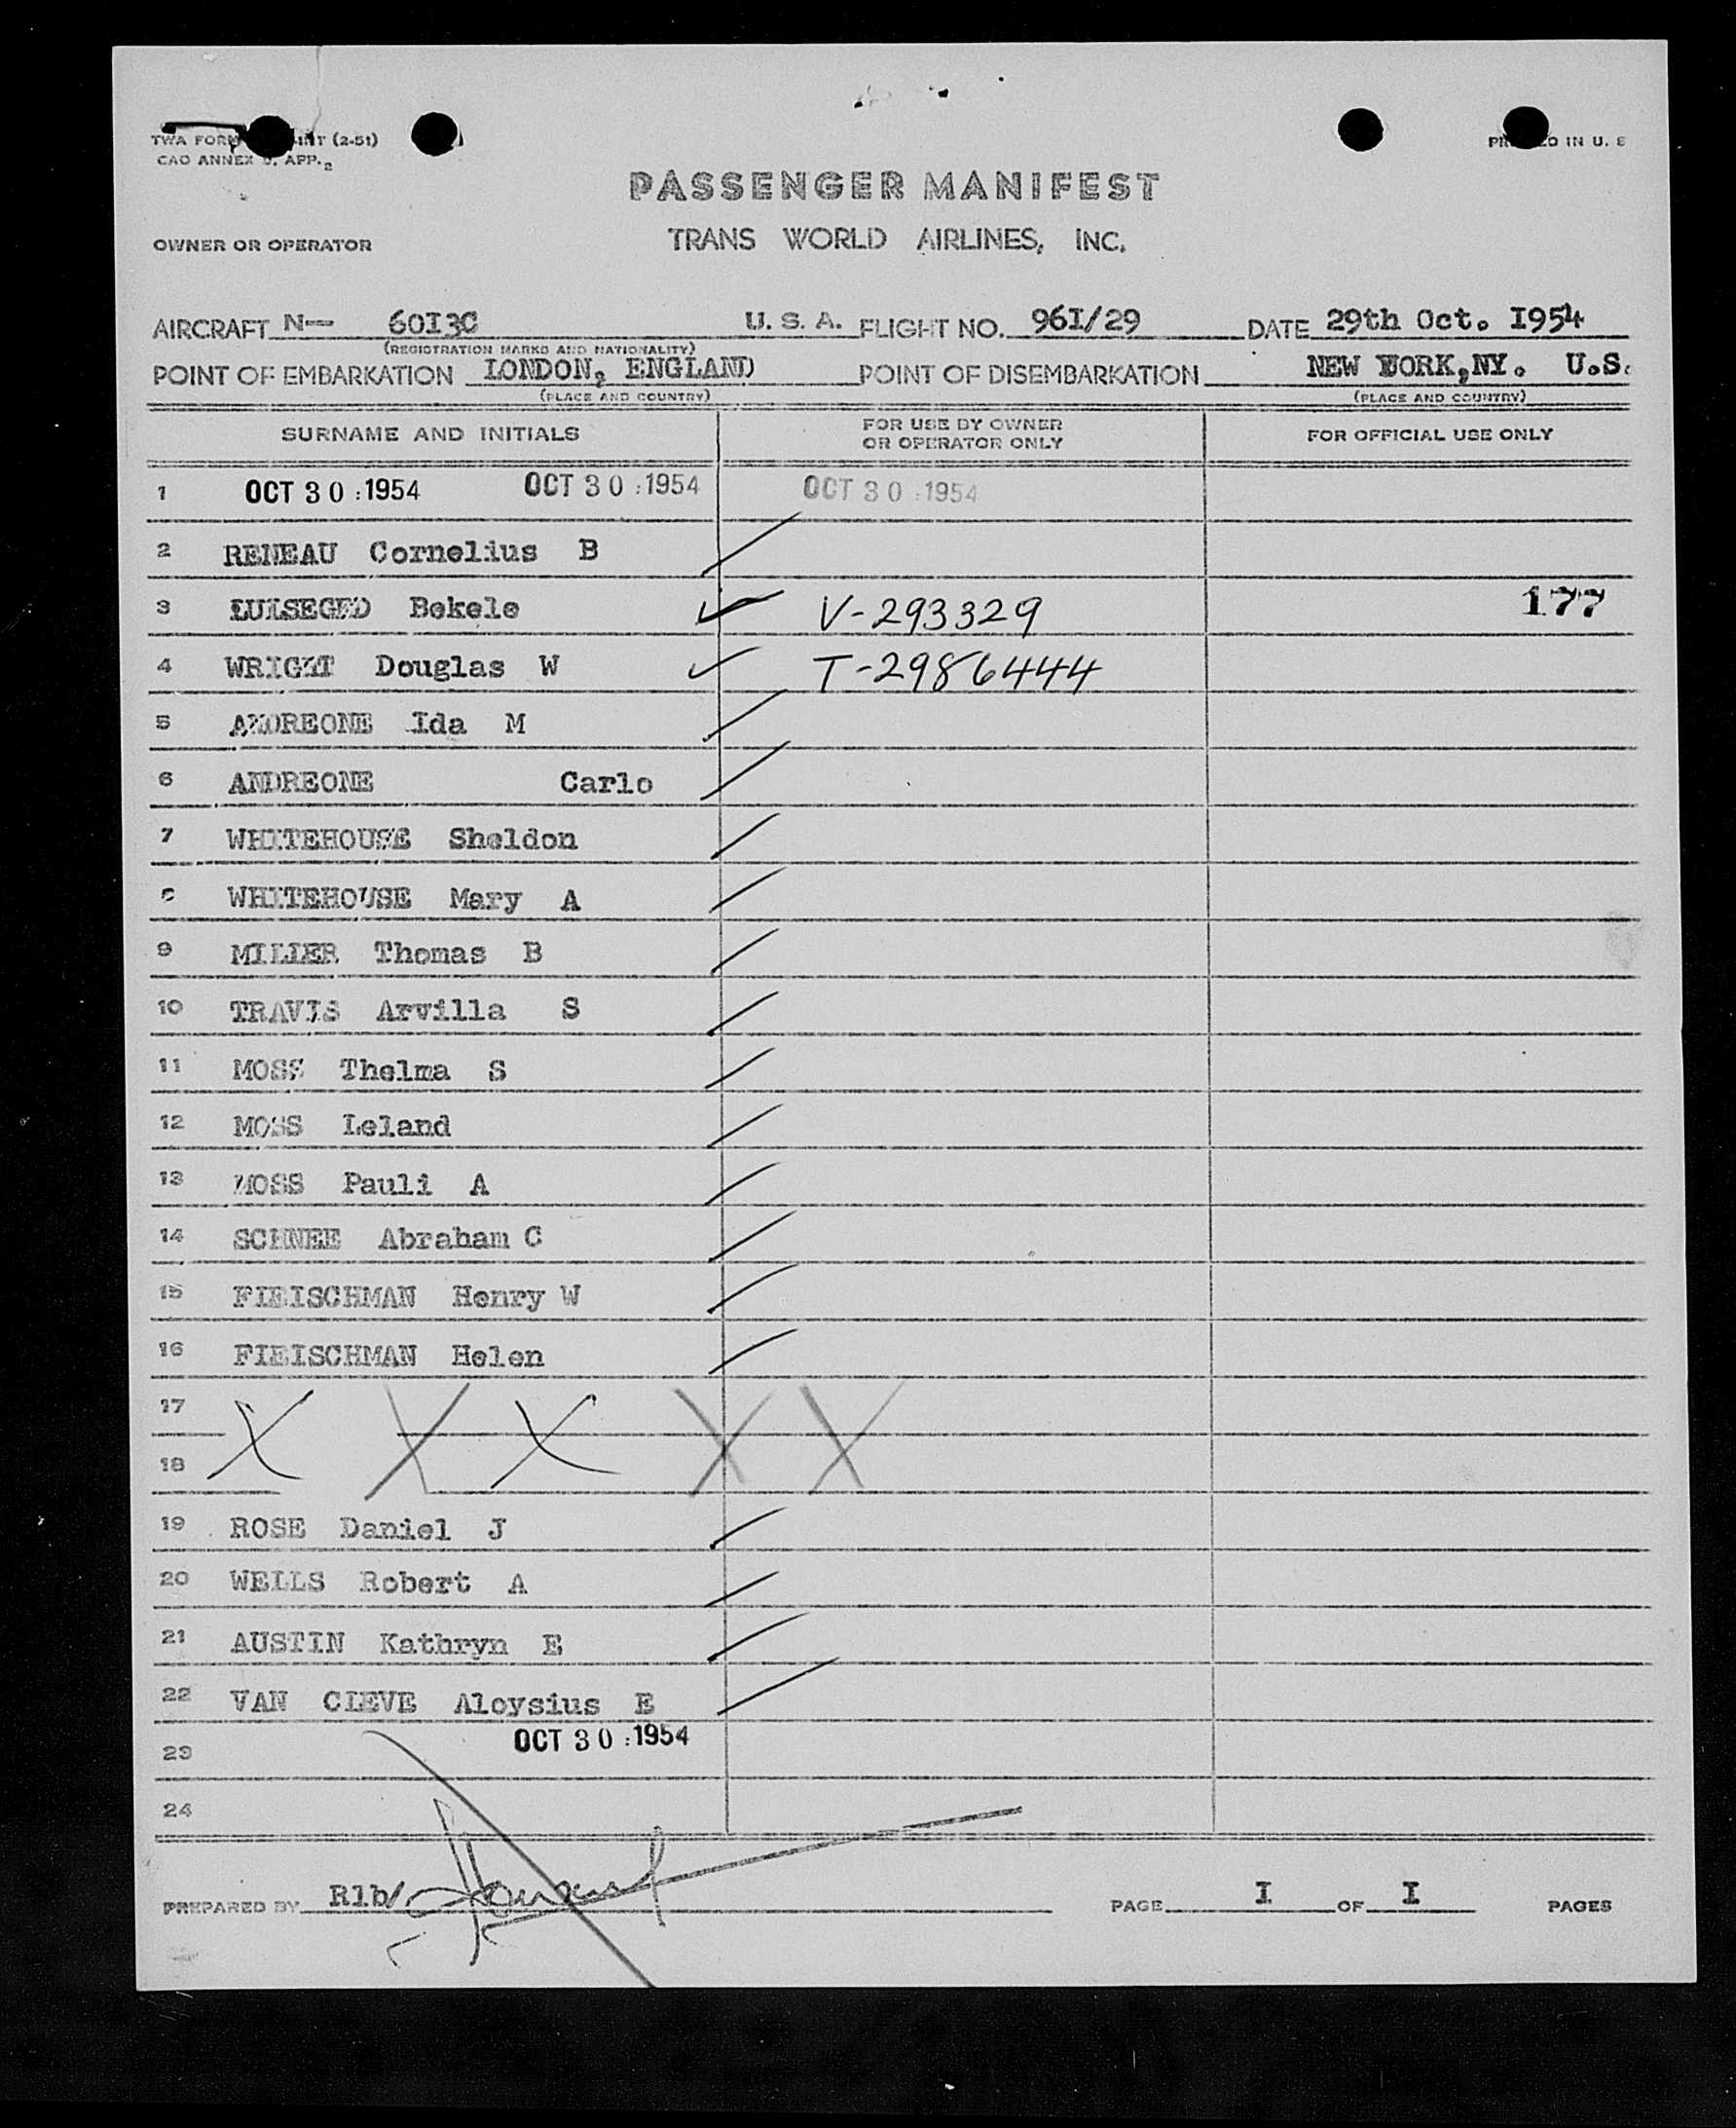 TWA FORM INT (2-51)
CAO ANNEX 9, APP. 2
PRINTED IN U. S
PASSENGER MANIFEST
OWNER OR OPERATOR TRANS WORLD AIRLINES, INC.
AIRCRAFT N-- 60I3C U. S. A. FLIGHT NO. 96I/29 DATE 29th Oct. I954
(REGISTRATION MARKS AND NATIONALITY)
POINT OF EMBARKATION LONDON, ENGLAND POINT OF DISEMBARKATION NEW YORK,NY. U.S.
(PLACE AND COUNTRY) (PLACE AND COUNTRY)
SURNAME AND INITIALS FOR USE BY OWNER OR OPERATOR ONLY FOR OFFICIAL USE ONLY
1 OCT 30 1954 OCT 30 1954 OCT 30 1954
2 RENEAU Cornelius B
3 LULSEGED Bekele V-293329 177
4 WRIGHT Douglas W T-2986444
5 ANDREONE Ida M
6 ANDREONE Carlo
7 WHITEHOUSE Sheldon
8 WHITEHOUSE Mary A
9 MILLER Thomas B
10 TRAVIS Arvilla S
11 MOSS Thelma S
12 MOSS Leland
13 MOSS Pauli A
14 SCHNEE Abraham C
15 FLEISCHMAN Henry W
16 FLEISCHMAN Helen
17 X X X X X
18
19 ROSE Daniel J
20 WELLS Robert A
21 AUSTIN Kathryn E
22 VAN CLEVE Aloysius E
23 OCT 30 1954
24
PREPARED BY Rlb/ PAGE I OF I PAGES